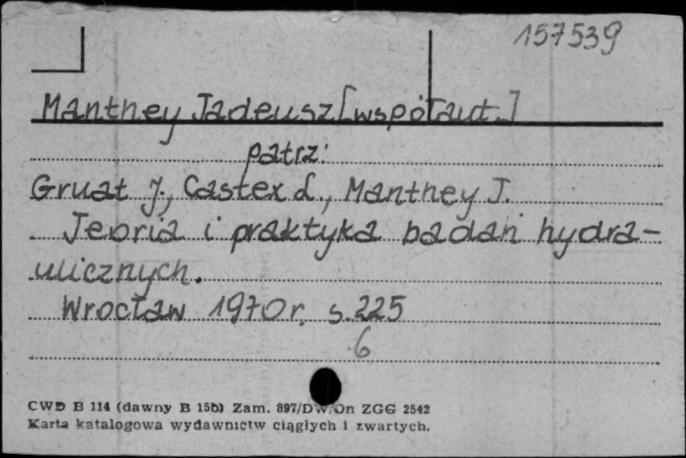 157539
Manthey Tadeusz [współaut.]
patrz:
Gruat J., Castex L., Manthey T.
Teoria i praktyka badań hydra-
ulicznych.
Wrocław 1970r. s. 225
6
CWD B 114 (dawny B 15b) Zam. 897/DW/On ZGG 2542
Karta katalogowa wydawnictw ciągłych i zwartych.